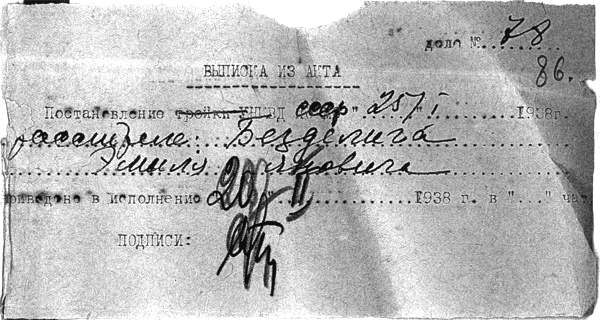 дело №....78
86.
ВЫПИСКА ИЗ АКТА
Постановление тройки УНКВД СССР "25/I......1938г.
о расстреле: Безделига
Эмиля Яновича
приведено в исполнение 20/"II............1938 г. в "..." час
ПОДПИСИ: